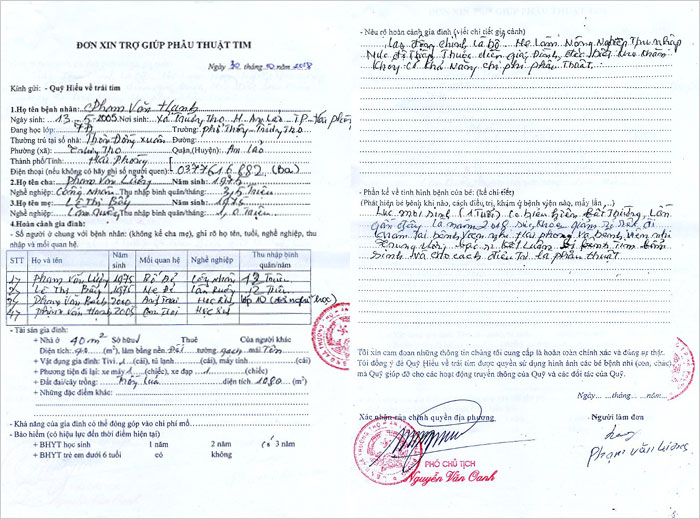 ĐƠN XIN TRỢ GIÚP PHẪU THUẬT TIM
Ngày 30 tháng 10 năm 2018
Kính gửi: - Quỹ Hiểu về trái tim
1.Họ tên bệnh nhân: Phạm Văn Hanh
Ngày sinh: 13-5-2005 Nơi sinh: Xã Trường Thọ H-An Lão-TP-Hải phòng
Đang học lớp: 7A Trường: Phổ Thông-Trường Thọ
Thường trú tại số nhà: Thôn Đồng xuân Đường:
Phường (xã): Trường Thọ Quận,(Huyện): An Lão
Thành phố/Tỉnh: Hải Phòng
Điện thoại (nếu không có hãy ghi số người quen): 0377616682 (Ba)
2.Họ tên cha: Phạm Văn Lường Năm sinh: 1975
Nghề nghiệp: Công Nhân Thu nhập bình quân/tháng: 3,5 Triệu
3.Họ tên mẹ: Lê Thị Bẩy Năm sinh: 1975
Nghề nghiệp: Làm ruộng Thu nhập bình quân/tháng: 1,0 Triệu
4.Hoàn cảnh gia đình:
- Số người ở chung với bệnh nhân: (không kể cha mẹ), ghi rõ họ tên, tuổi, nghề nghiệp, thu nhập và mối quan hệ.
STT Họ và tên Năm sinh Mối quan hệ Nghề nghiệp Thu nhập bình quân/năm
1 Phạm Văn Lường 1975 Bố Đẻ Công Nhân 42 Triệu
2 Lê Thị Bẩy 1975 Mẹ Đẻ Làm Ruộng 12 Triệu
3 Phạm Văn Bách 2000 Anh Trai Học Sinh lớp 10 (đã nghỉ học)
4 Phạm Văn Hanh 2005 Con Trai Học Sinh
- Tài sản gia đình:
+ Nhà ở 40 m² Sở hữu Thuê Của người khác
Diện tích: (m²), làm bằng nền Đất tường gạch mái Tôn
+ Vật dụng gia đình: Tivi 1 (cái), tủ lạnh (cái), máy tính (cái)
+ Phương tiện đi lại: xe máy 1 (chiếc), xe đạp 1 (chiếc)
+ Đất đai/cây trồng: Trồng lúa diện tích 1080 (m²)
+ Những đặc điểm khác:
- Khả năng của gia đình có thể đóng góp vào chi phí mổ
- Bảo hiểm (có hiệu lực đến thời điểm hiện tại)
+ BHYT học sinh 1 năm 2 năm có 3 năm
+ BHYT trẻ em dưới 6 tuổi có không
- Nêu rõ hoàn cảnh gia đình (viết chi tiết gia cảnh)
Lao động chính là bố. Mẹ Làm Nông Nghiệp Thu nhập
Thấp Thuộc diện gia Đình đặc biệt khó khăn
Không Có khả Năng chi phí phẫu Thuật.
- Phần kể về tình hình bệnh của bé: (kể chi tiết)
(Phát hiện bệnh khi nào, cách điều trị, khám ở bệnh viện nào, mấy lần,...)
Lúc mới sinh (1 Tuổi) có biểu hiện bất Thường, Lần
gần đây là năm 2018 Sức khỏe giảm
khám Tại bệnh viện nhi Hải phòng và bệnh viện nhi
Trung ương bác sĩ kết Luận bị bệnh Tim bẩm
Sinh và cho cách điều Trị là phẫu thuật
Tôi xin cam đoan những thông tin chúng tôi cung cấp là hoàn toàn chính xác và đúng sự thật.
Tôi đồng ý để Quỹ Hiểu về trái tim được quyền sử dụng hình ảnh các bé bệnh nhi (con, cháu)
mà Quỹ giúp đỡ cho các hoạt động truyền thông của Quỹ và các đối tác của Quỹ.
Ngày.... tháng.... năm....
Xác nhận của chính quyền địa phương Người làm đơn
PHÓ CHỦ TỊCH
Nguyễn Văn Canh
Phạm văn Lường